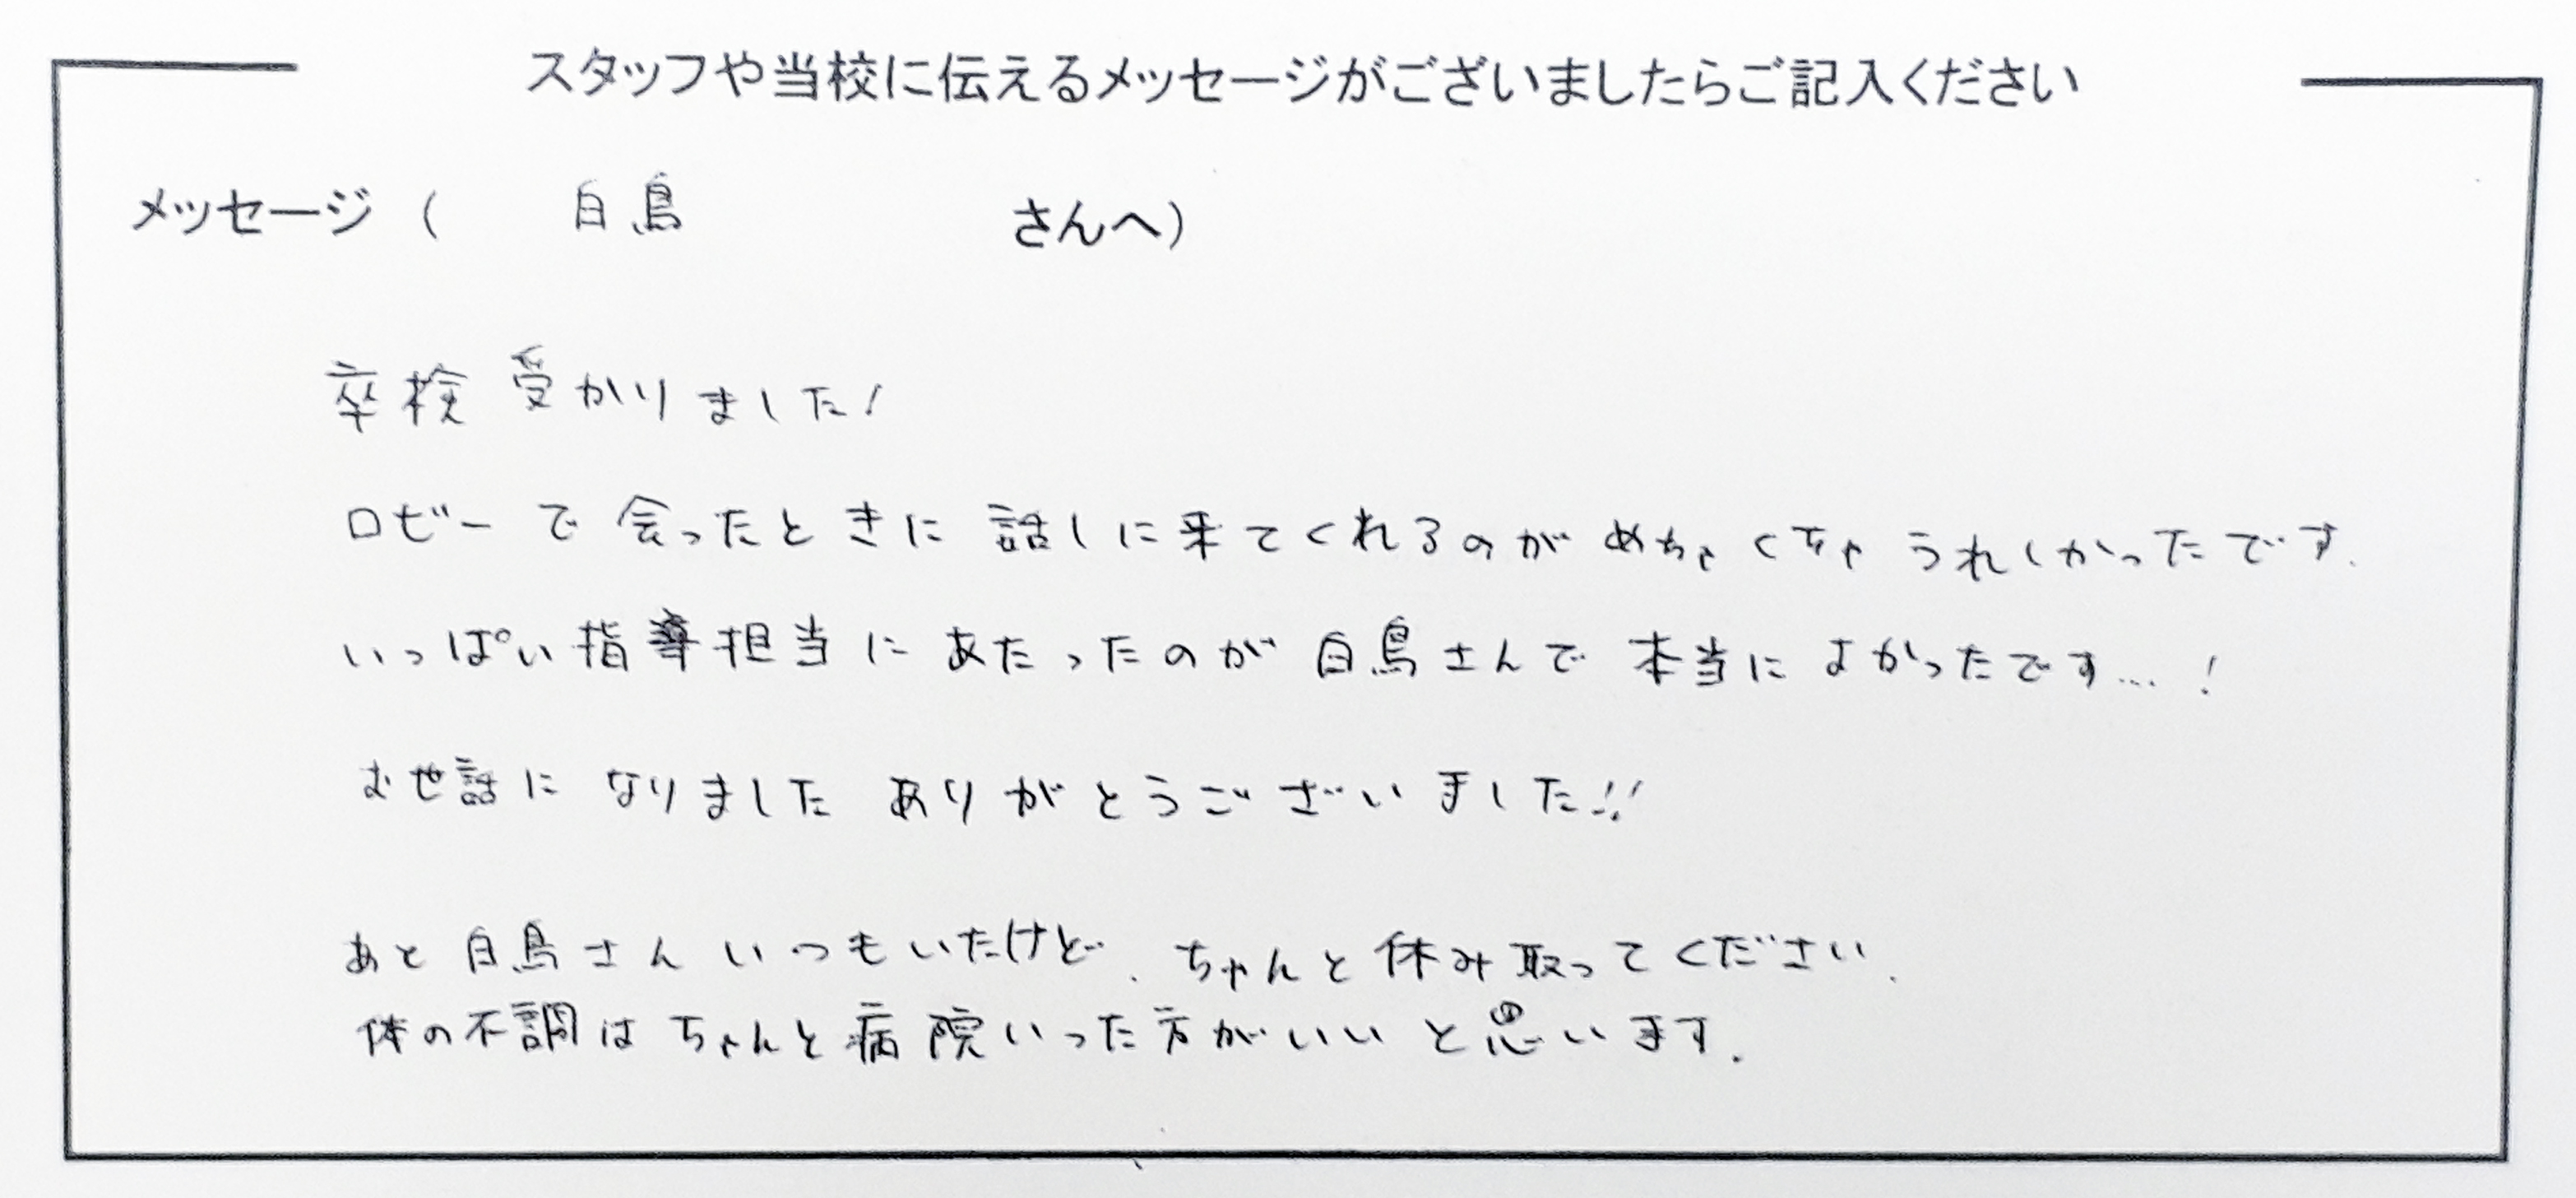 スタッフや当校に伝えるメッセージがございましたらご記入ください
メッセージ（ 白鳥 さんへ）
卒検受かりました!
ロビーで会ったときに話しに来てくれるのがめちゃくちゃうれしかったです.
いっぱい指導担当にあたったのが白鳥さんで本当によかったです…!
お世話になりました ありがとうございました!!
あと白鳥さんいつもいたけど、ちゃんと休み取ってください.
体の不調はちゃんと病院いった方がいいと思います.